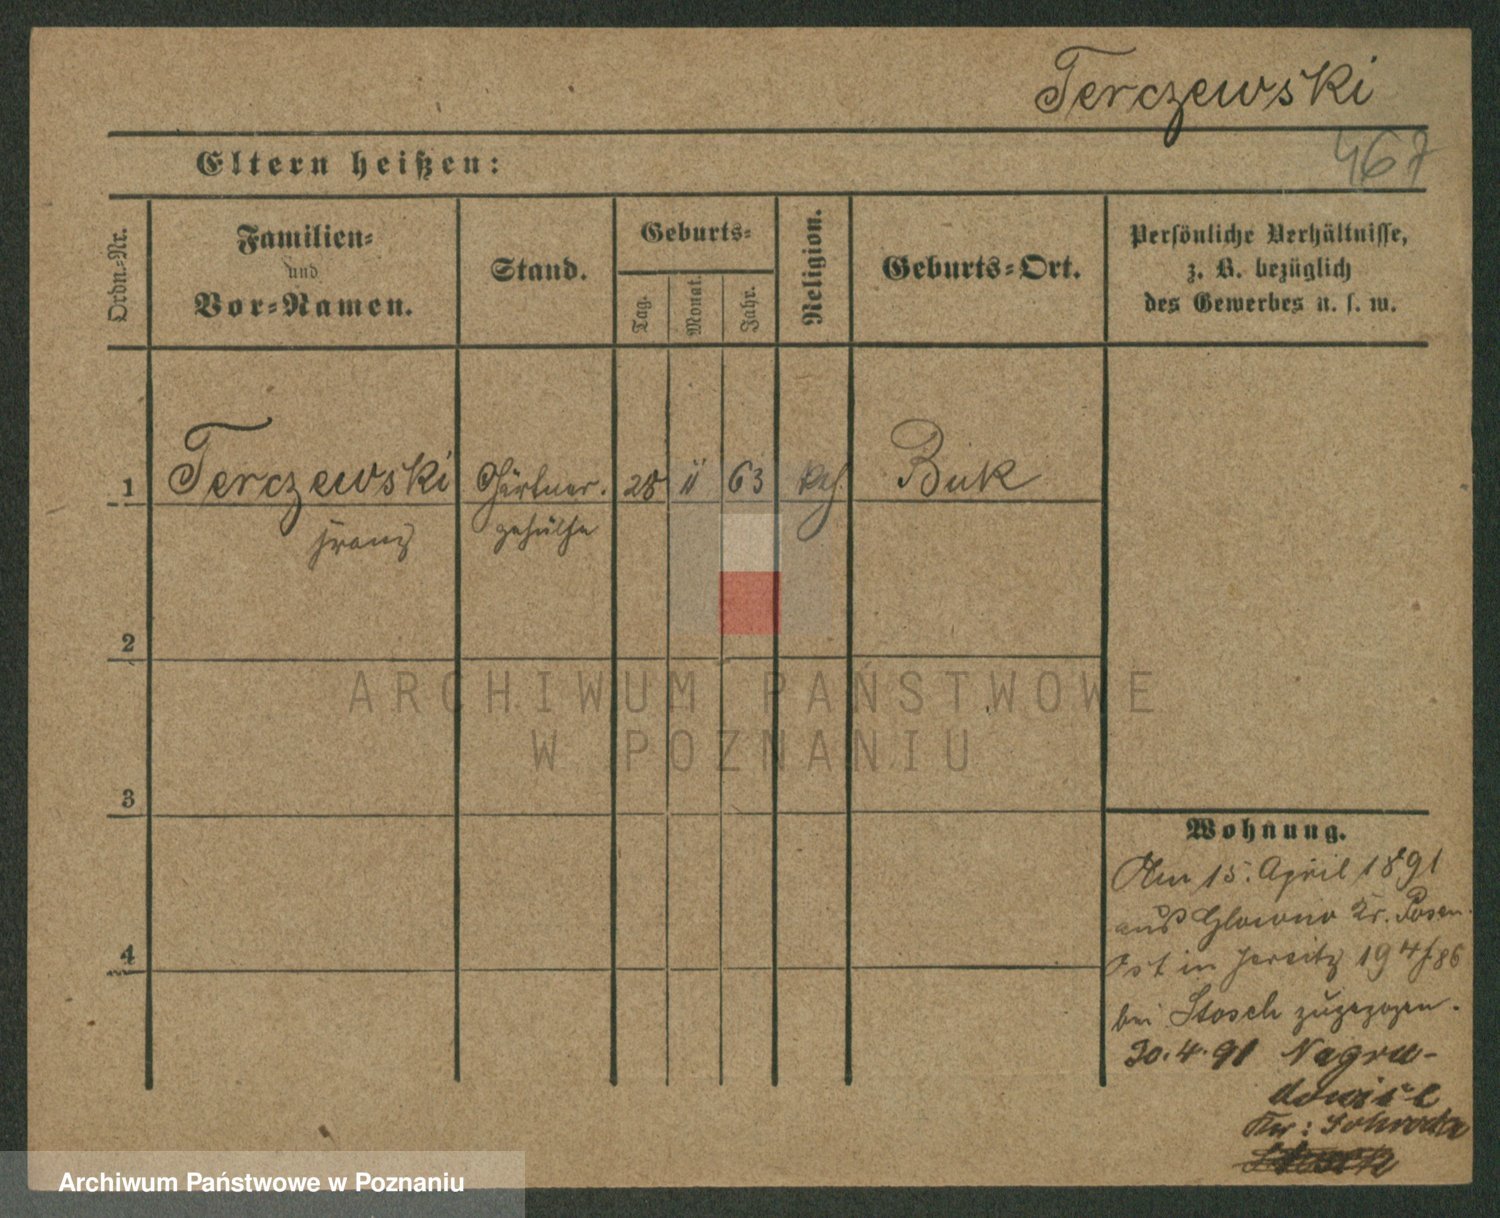 Terczewski
467
Eltern heißen:
Ordn.-Nr.
Familien-
und
Vor-Namen.
Stand.
Geburts-
Tag.
Monat.
Jahr.
Religion.
Geburts-Ort.
Persönliche Verhältnisse,
z. B. bezüglich
des Gewerbes u. s. w.
1
Terczewski
Franz
Gärtner.
gehülfe
28
11
63
kth.
Buk
2
3
4
Wohnung.
Am 15. April 1891
aus Glowno Kr. Posen
Ost in Jersitz 194/86
bei Stosch zugezogen.
30.4.91 Nagra-
dowice
Kr: Schroda
ARCHIWUM PAŃSTWOWE
W POZNANIU
Archiwum Państwowe w Poznaniu